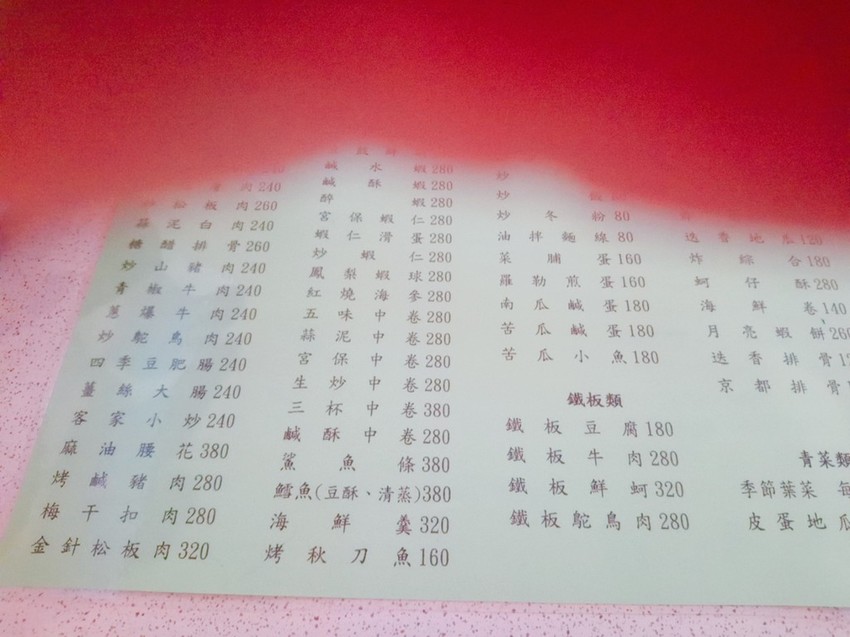 肉240
松板肉260
蒜泥白肉240
糖醋排骨260
炒山豬肉240
青椒牛肉240
蔥爆牛肉240
炒鴕鳥肉240
四季豆肥腸240
薑絲大腸240
客家小炒240
麻油腰花380
烤鹹豬肉280
梅干扣肉280
金針松板肉320
鹹水蝦280
鹹酥蝦280
醉蝦280
宮保蝦仁280
蝦仁滑蛋280
炒蝦仁280
鳳梨蝦球280
紅燒海參280
五味中卷280
蒜泥中卷280
宮保中卷280
生炒中卷280
三杯中卷380
鹹酥中卷280
鯊魚條380
鱈魚(豆酥、清蒸)380
海鮮羹320
烤秋刀魚160
炒
炒
炒冬粉80
油拌麵線80
菜脯蛋160
羅勒煎蛋160
南瓜鹹蛋180
苦瓜鹹蛋180
苦瓜小魚180
鐵板類
鐵板豆腐180
鐵板牛肉280
鐵板鮮蚵320
鐵板鴕鳥肉280
迭香地瓜120
炸綜合180
蚵仔酥280
海鮮卷140
月亮蝦餅260
迭香排骨
京都排骨
青菜類
季節葉菜 每
皮蛋地瓜